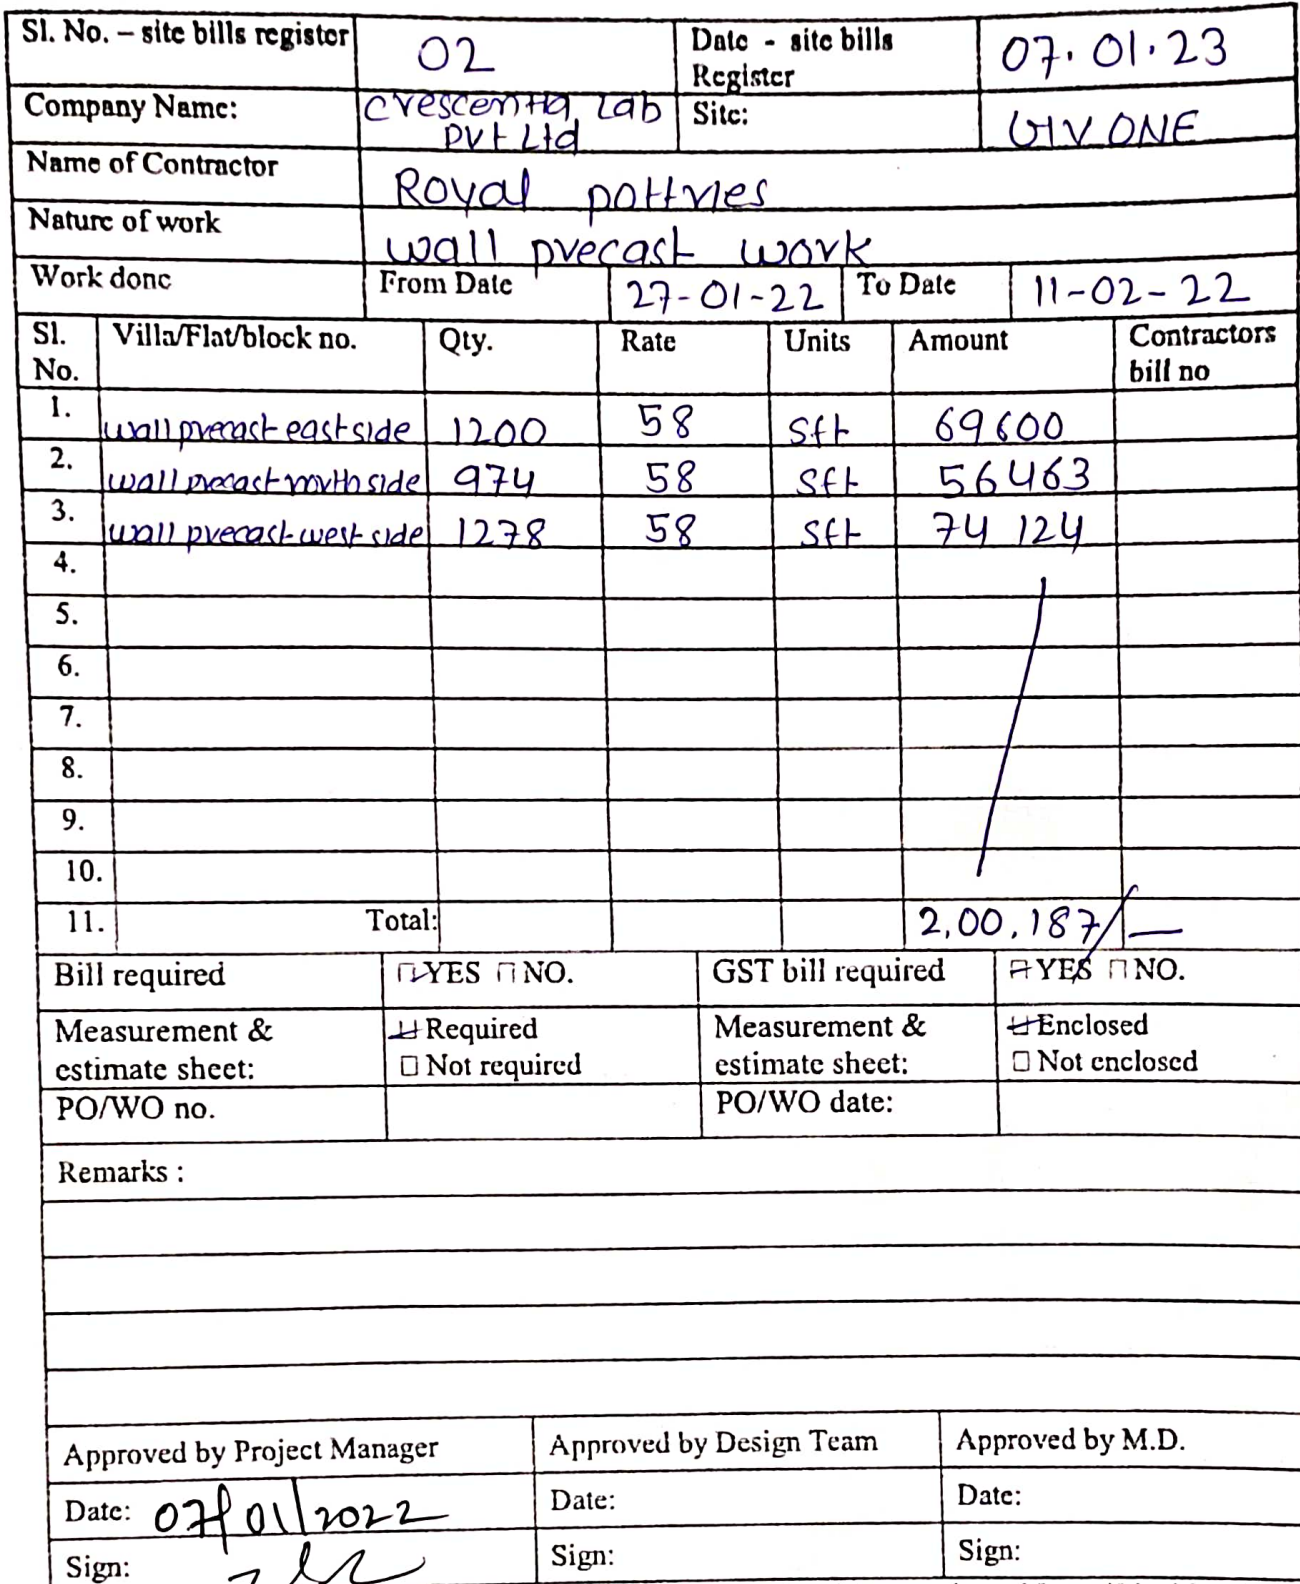 Sl. No. – site bills register 02 Date - site bills Register 07.01.23
Company Name: Crescentia Lab Pvt Ltd Site: GIV ONE
Name of Contractor Royal pottries
Nature of work wall precast work
Work done From Date 27-01-22 To Date 11-02-22
Sl. No. Villa/Flat/block no. Qty. Rate Units Amount Contractors bill no
1. wall precast east side 1200 58 sft 69600
2. wall precast north side 974 58 sft 56463
3. wall precast west side 1278 58 sft 74124
4.
5.
6.
7.
8.
9.
10.
11. Total: 2,00,187/—
Bill required YES NO. GST bill required YES NO.
Measurement & estimate sheet: Required Measurement & estimate sheet: Enclosed
Not required Not enclosed
PO/WO no. PO/WO date:
Remarks :
Approved by Project Manager Approved by Design Team Approved by M.D.
Date: 07/01/2022 Date: Date:
Sign: Sign: Sign: